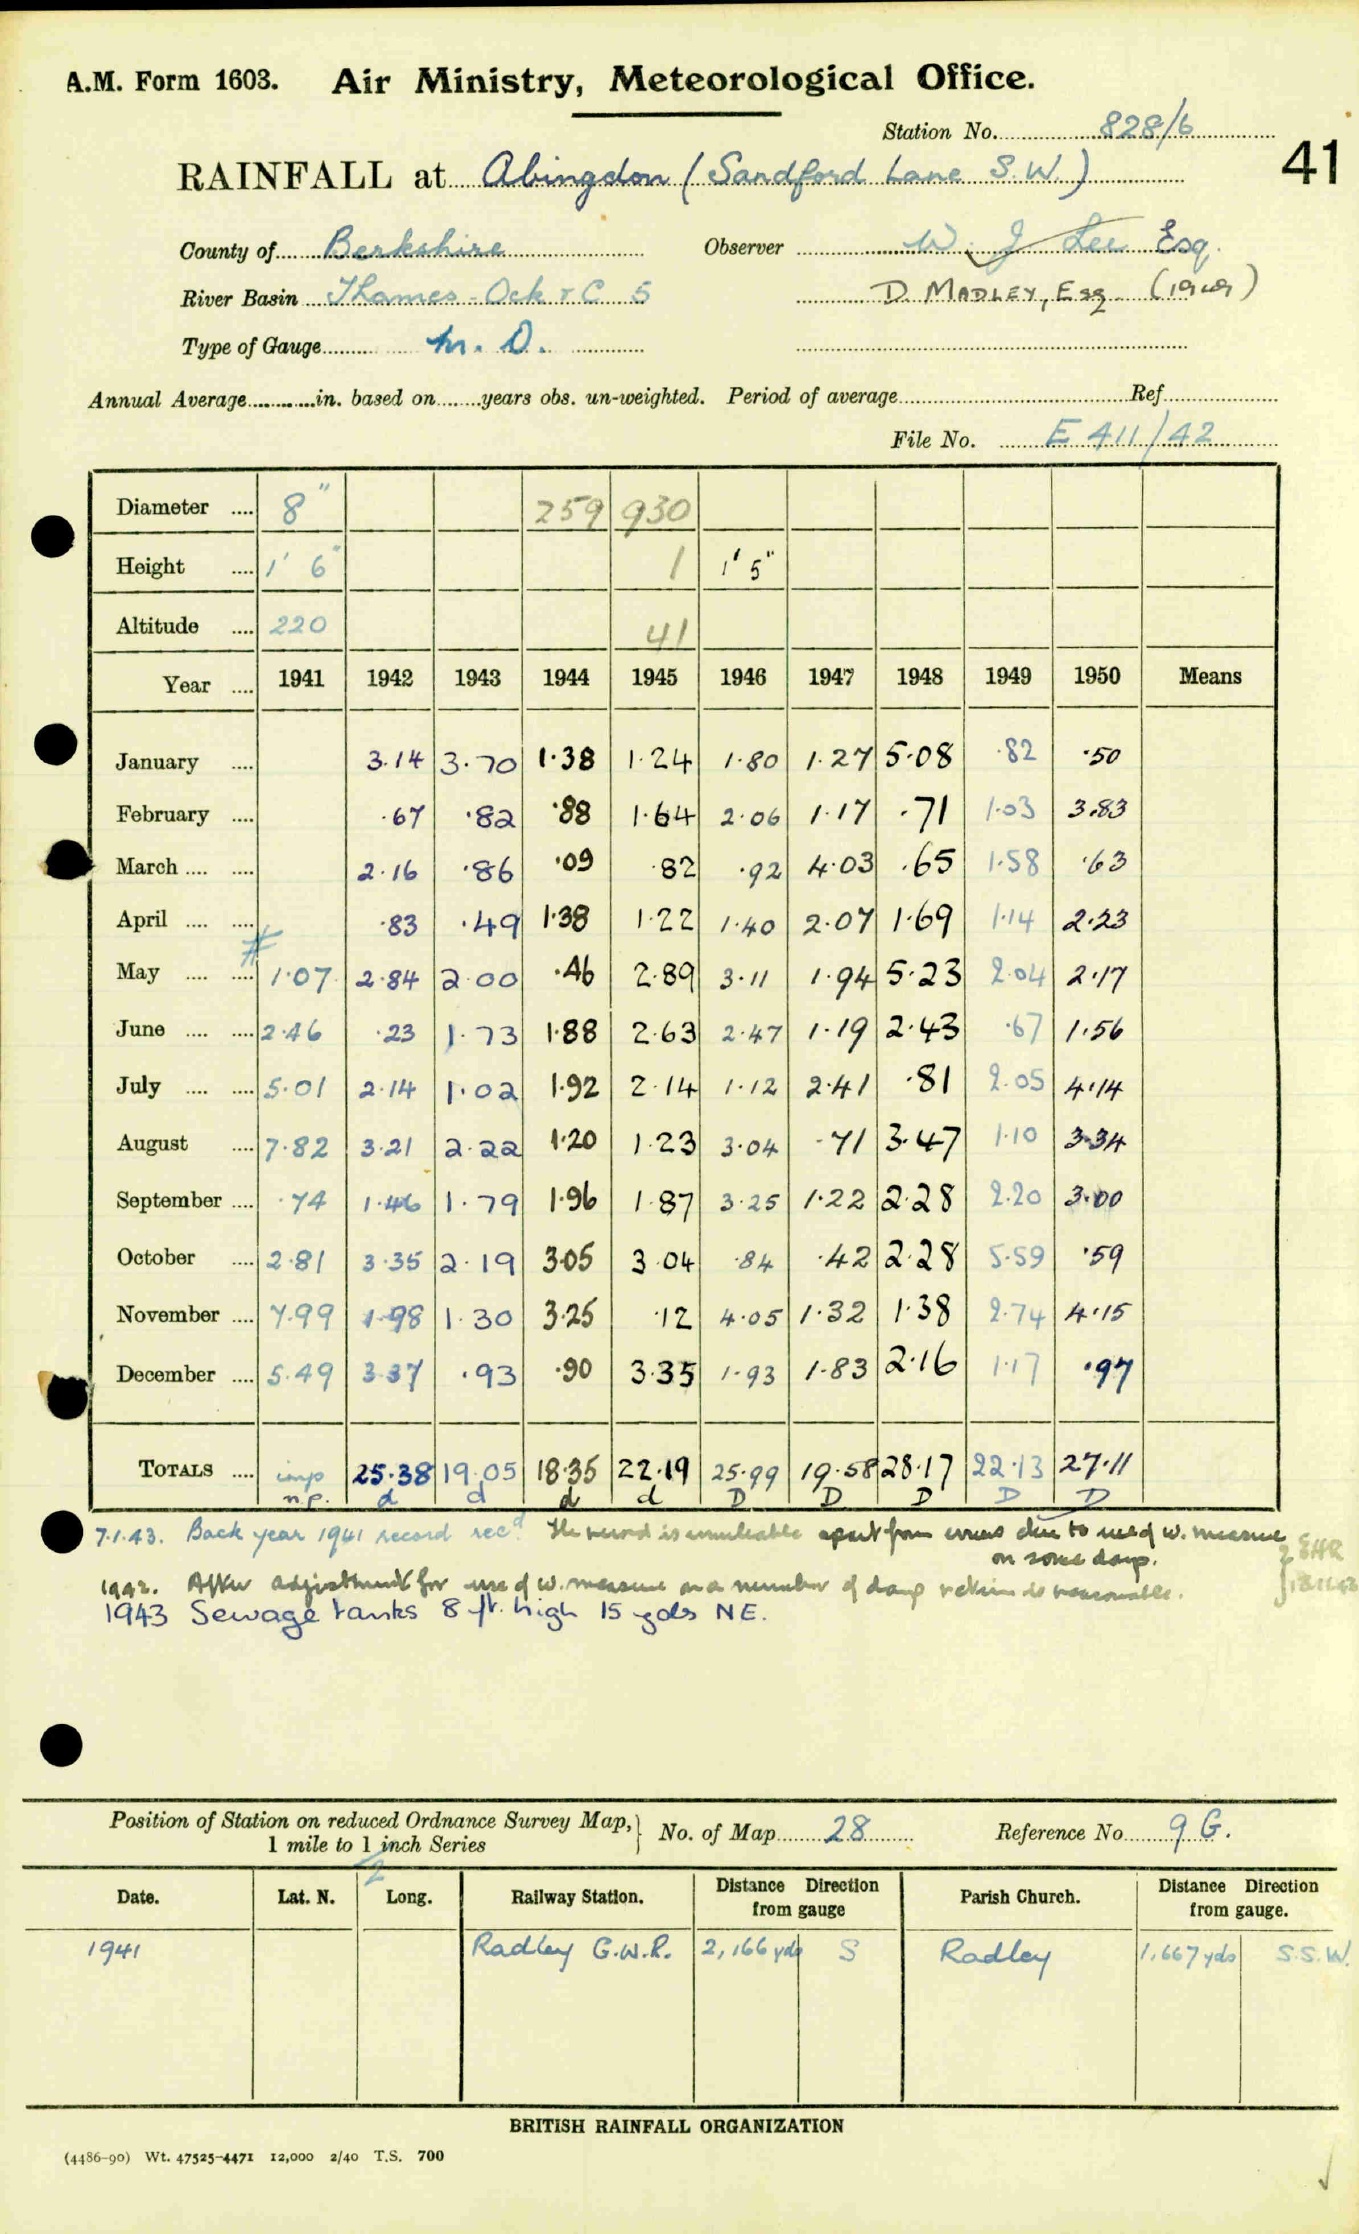 A.M. Form 1603. Air Ministry, Meteorological Office.
Station No. 828/6
41
RAINFALL at Abingdon (Sandford Lane S.W.)
County of Berkshire Observer W. J Lee Esq.
River Basin Thames - Ock + C 5 D. MADLEY, Esq (1949)
Type of Gauge M. O.
Annual Average in. based on years obs. un-weighted. Period of average Ref
File No. E 411/42
Diameter .... 8" 259 930
Height .... 1' 6" 1 1' 5"
Altitude .... 220 41
Year .... 1941 1942 1943 1944 1945 1946 1947 1948 1949 1950 Means
January .... 3.14 3.70 1.38 1.24 1.80 1.27 5.08 .82 .50
February .... .67 .82 .88 1.64 2.06 1.17 .71 1.03 3.83
March .... .... 2.16 .86 .09 .82 .92 4.03 .65 1.58 .63
April .... .... .83 .49 1.38 1.22 1.40 2.07 1.69 1.14 2.23
May .... .... # 1.07 2.84 2.00 .46 2.89 3.11 1.94 5.23 2.04 2.17
June .... .... 2.46 .23 1.73 1.88 2.63 2.47 1.19 2.43 .67 1.56
July .... .... 5.01 2.14 1.02 1.92 2.14 1.12 2.41 .81 2.05 4.14
August .... 7.82 3.21 2.22 1.20 1.23 3.04 .71 3.47 1.10 3.34
September .... .74 1.46 1.79 1.96 1.87 3.25 1.22 2.28 2.20 3.00
October .... 2.81 3.35 2.19 3.05 3.04 .84 .42 2.28 5.59 .59
November .... 7.99 1.98 1.30 3.25 .12 4.05 1.32 1.38 2.74 4.15
December .... 5.49 3.37 .93 .90 3.35 1.93 1.83 2.16 1.17 .97
TOTALS .... imp 25.38 19.05 18.35 22.19 25.99 19.58 28.17 22.13 27.11
n.p. d d d d D D D D D
7.1.43. Back year 1941 record recd. The record is unreliable apart from errors due to use of w. measure
on some days.
1942. After adjustment for use of w. measure on a number of days return is reasonable.
1943 Sewage tanks 8 ft. high 15 yds NE.
Position of Station on reduced Ordnance Survey Map, No. of Map 28 Reference No. 9 G.
1 mile to 1 inch Series
2
Date. Lat. N. Long. Railway Station. Distance Direction from gauge Parish Church. Distance Direction from gauge.
1941 Radley G.W.R. 2,166 yds S Radley 1,667 yds S.S.W.
BRITISH RAINFALL ORGANIZATION
(4486-90) Wt. 47525-4471 12,000 2/40 T.S. 700